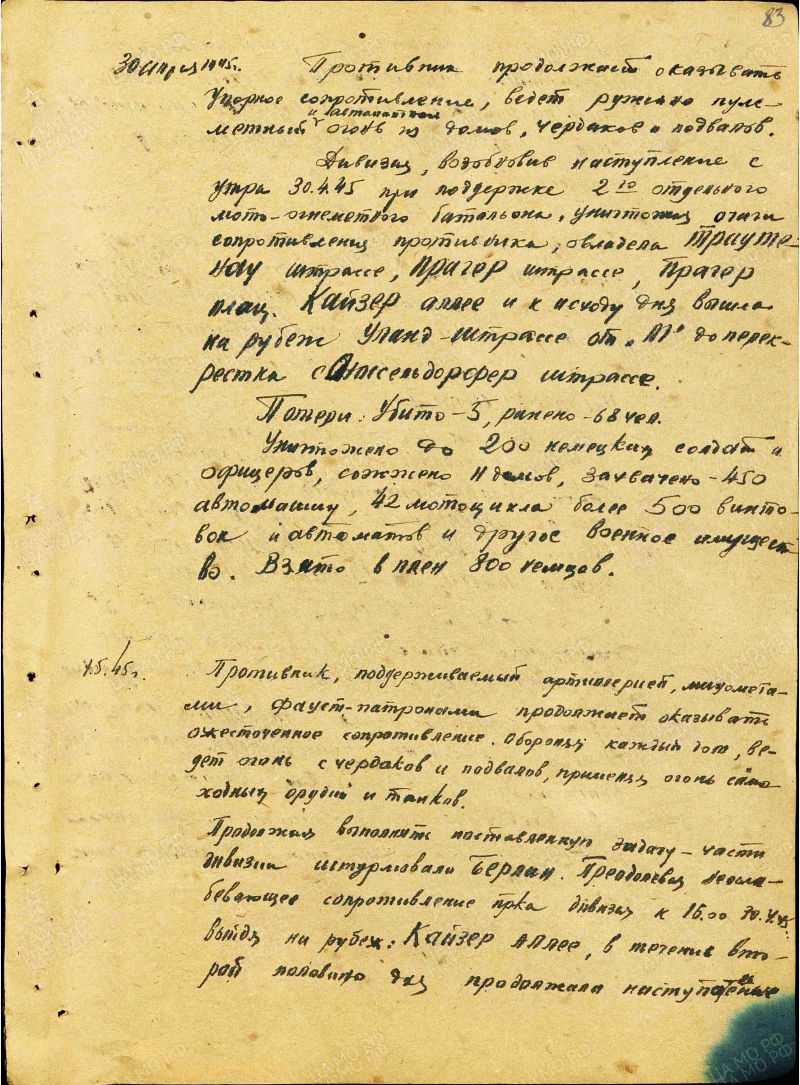 83
30 апреля 1945г. Противник продолжает оказывать
упорное сопротивление, ведет ружейно пуле-
и автоматный
метный огонь из домов, чердаков и подвалов.
Дивизия, возобновив наступление с
утра 30.4.45 при поддержке 2го отдельного
мото-огнеметного батальона, уничтожая очаги
сопротивления противника, овладела Трауте-
нау штрассе, Прагер штрассе, Прагер
плац. Кайзер аллее и к исходу дня вышла
на рубеж Уланд-штрассе от до перек-
рестка с Дюссельдорфер штрассе.
Потери: Убито-5, ранено-68 чел.
Уничтожено до 200 немецких солдат и
офицеров, сожжено домов, захвачено-450
автомашин, 42 мотоцикла более 500 винто-
вок и автоматов и другое военное имущест
во. Взято в плен 800 немцов.
1.5.45г. Противник, поддерживаемый артиллерией, минометa-
ми, фауст-патронами продолжает оказывать
ожесточенное сопротивление. Обороняя каждый дом, ве-
дет огонь с чердаков и подвалов, применяя огонь само
ходных орудий и танков.
Продолжая выполнять поставленную задачу-части
дивизии штурмовали Берлин. Преодолевая неосла-
бевающее сопротивление пр-ка дивизия к 16.00 30.4.45
выйдя на рубеж: Кайзер аллее, в течение вто-
рой половины дня продолжала наступление